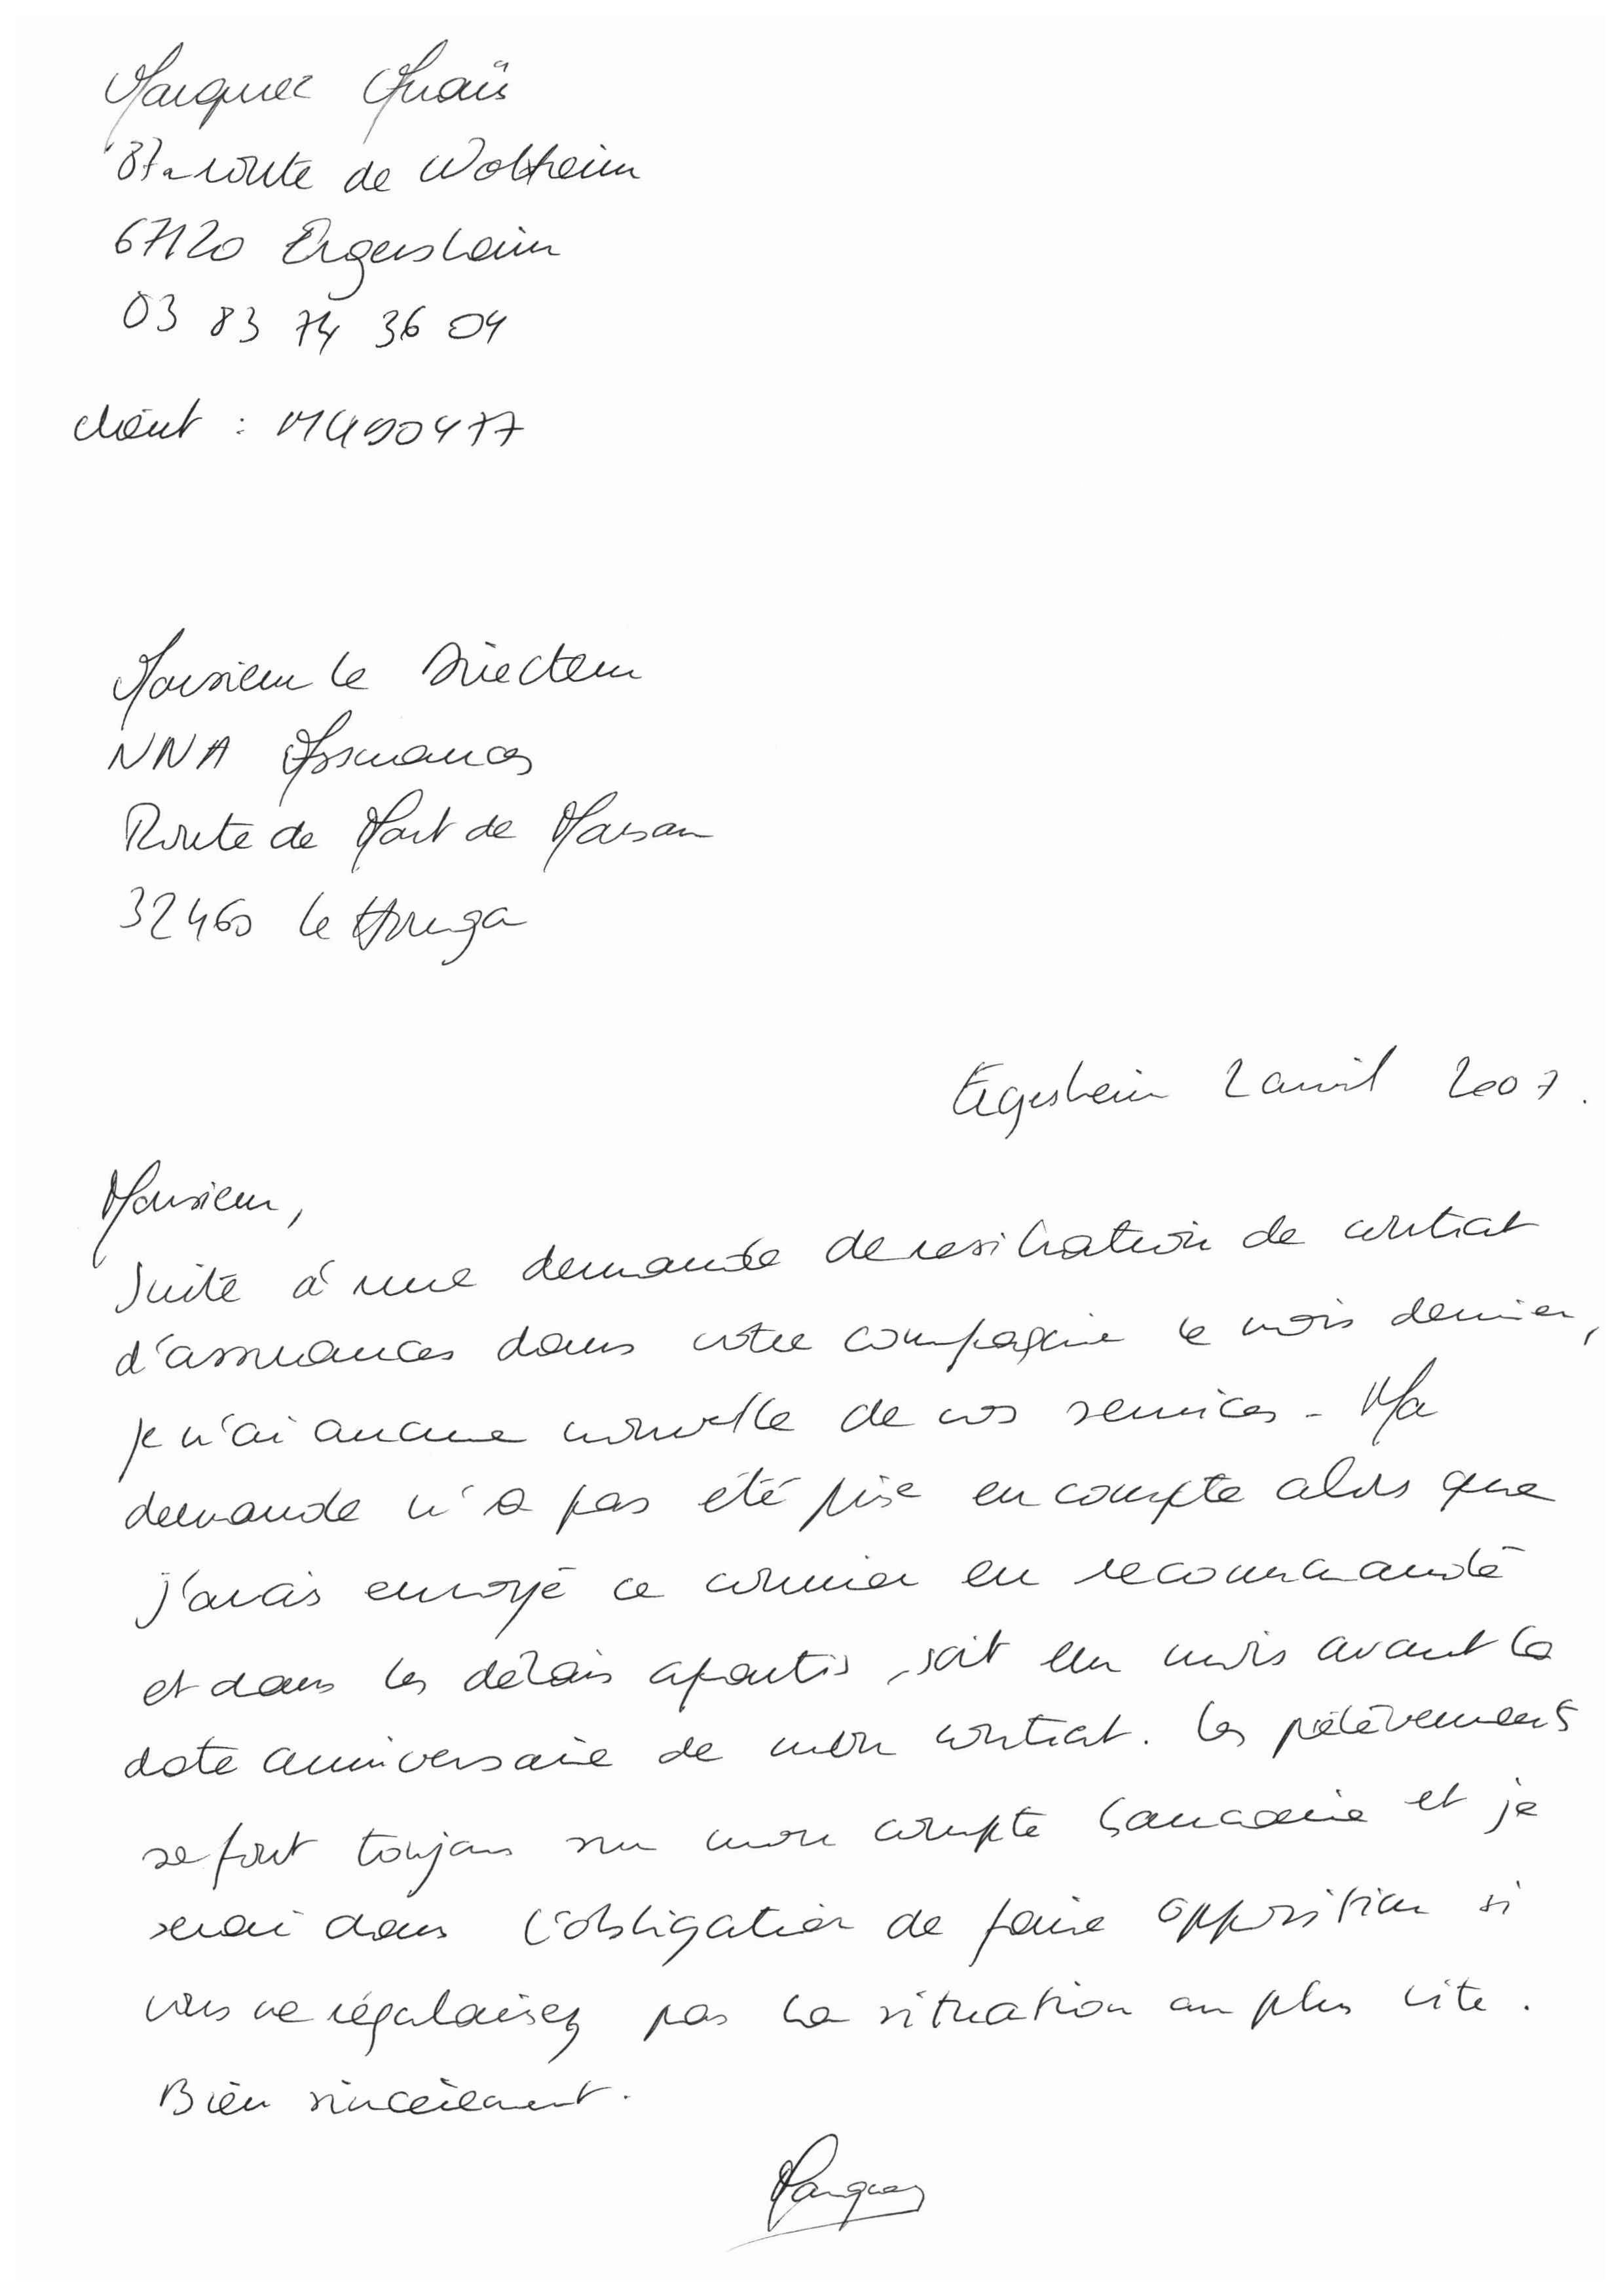 Marquez Anaïs
37 route de Wolxheim
67120 Ergersheim
03 83 74 36 04
client : MA90477
Monsieur le Directeur
NNA Assurances
Route de Mont de Marsan
32460 Le Houga
Ergersheim 2 avril 2007.
Monsieur,
Suite à une demande de resiliation de contrat
d'assurances dans votre compagnie le mois dernier,
je n'ai aucune nouvelle de vos services. Ma
demande n'a pas été prise en compte alors que
j'avais envoyé ce courrier en recommandé
et dans les délais apartis, soit un mois avant la
date anniversaire de mon contrat. Les prélèvements
se font toujours sur mon compte bancaire et je
serai dans l'obligation de faire opposition si
vous ne régularisez pas la situation au plus vite.
Bien sincèrement.
Marquez